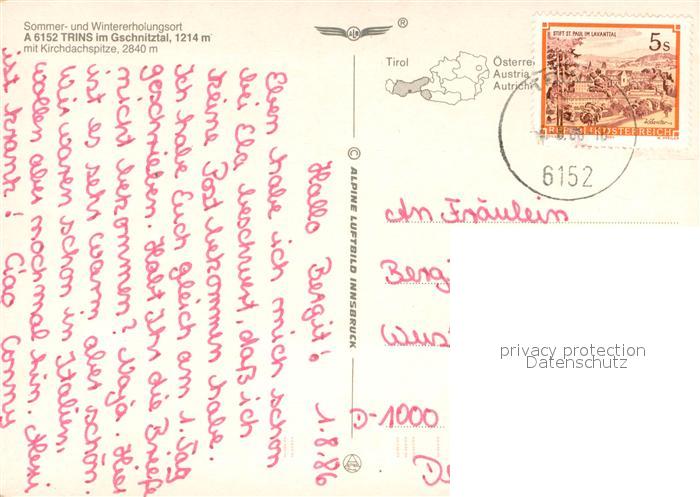 Sommer- und Wintererholungsort
A 6152 TRINS im Gschnitztal, 1214 m
mit Kirchdachspitze, 2840 m
®
Tirol
Österrei
Austria
Autrich
STIFT ST. PAUL IM LAVANTTAL
5s
REPUBLIK ÖSTERREICH
6152
© ALPINE LUFTBILD INNSBRUCK
Hallo Bergit! 1.8.86
Eben habe ich mich schon
bei Ela beschwert, daß ich
keine Post bekommen habe.
Ich habe Euch gleich am 1. Tag
geschrieben. Habt Ihr die Briefe
nicht bekommen? Naja. Hier
ist es sehr warm aber schön.
Wir waren schon in Italien,
wollen aber nochmal hin. Alexi
ist krank! Ciao Conny
An Fräulein
Berg
Wus
D-1000
privacy protection
Datenschutz